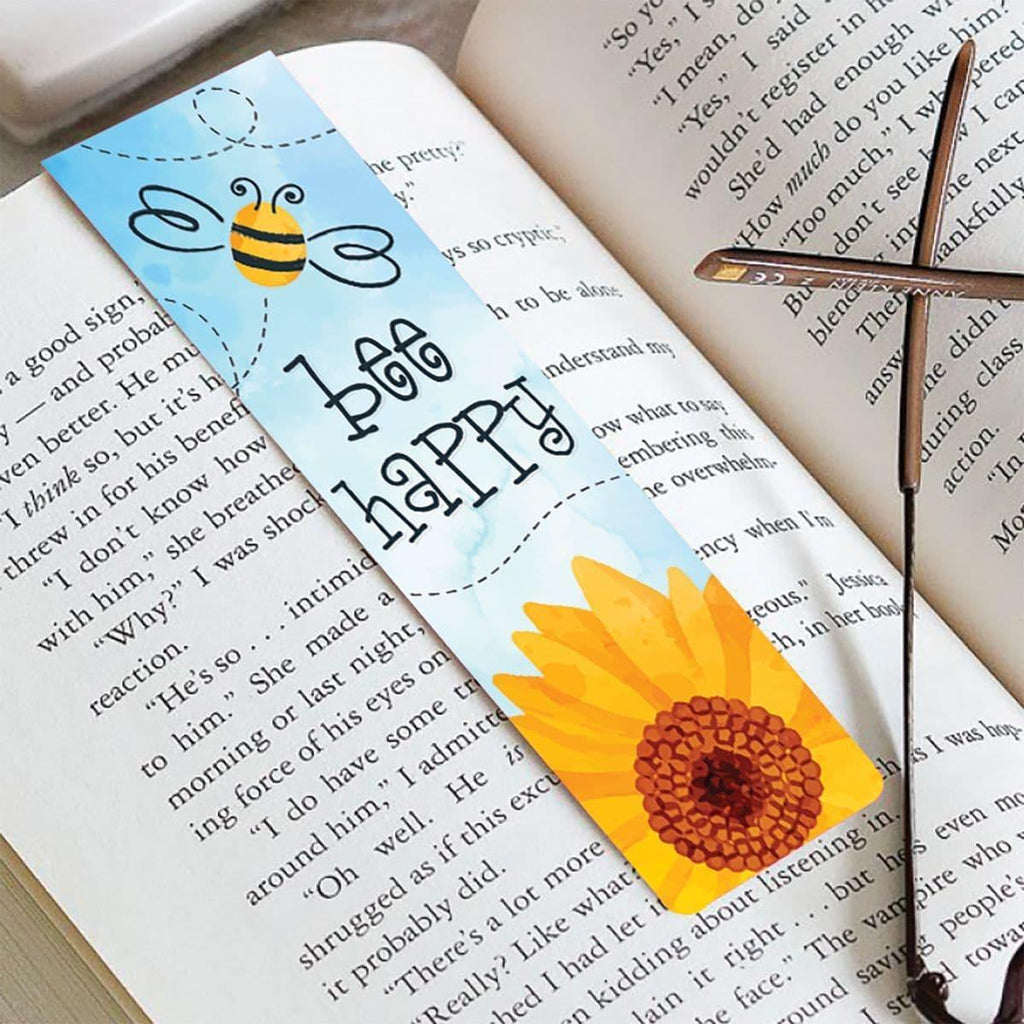 bee
happy
he pretty."
y."
ys so cryptic,"
h to be alone
nderstand my
ow what to say
embering this
he overwhelm-
ency when I'm
geous." Jessica
ch, in her book
h as I was hop-
a good sign,
y — and probab
ven better. He mu
"I think so, but it's h
threw in for his benefi
"I don't know how
with him," she breathe
"Why?" I was shock
reaction.
"He's so . . . intimid
to him." She made a
morning or last night,
ing force of his eyes on
"I do have some tr
around him," I admitte
"Oh well. He is
shrugged as if this excu
it probably did.
"There's a lot more about listening in.
"Really? Like what? . . . but he's even mo
hed I had let it right
en kidding about
lain it
he face." The vampire who w
round saving people's
d towar
"So yo
"Yes," I s
"I mean, do
"Yes," I said
wouldn't register in h
She'd had enough wh
"How much do you like him
"Too much," I whispered
don't see how I can
the next
hankfully
But
blend
Then
answ
she didn't
during class
action.
"In
Mo